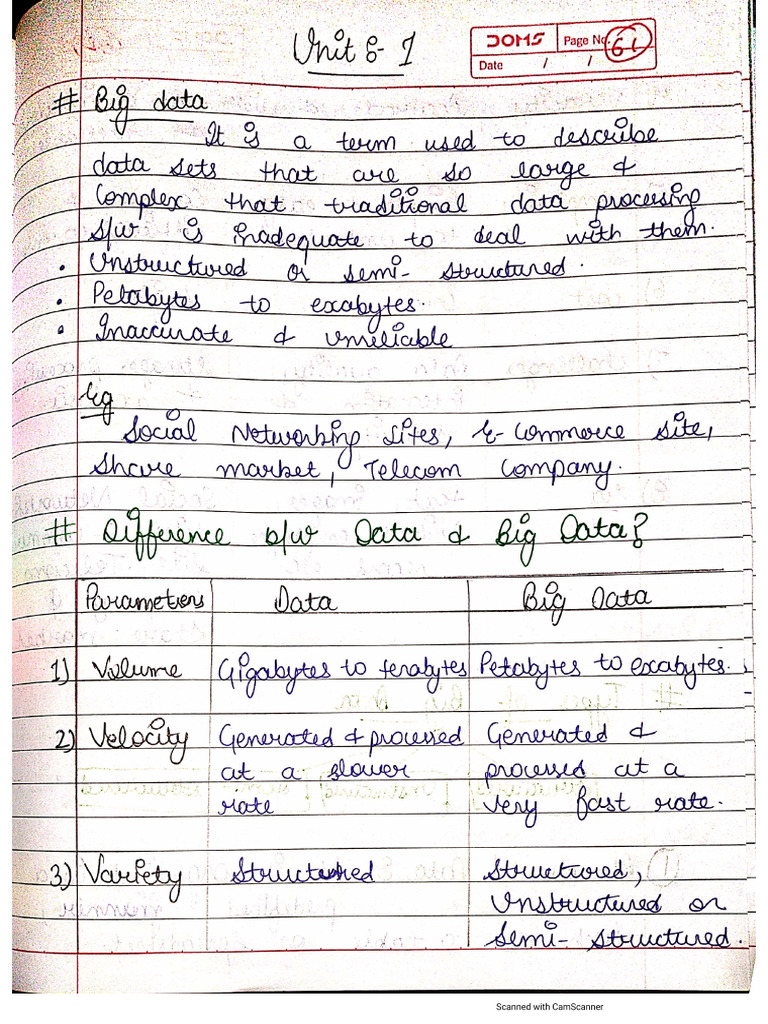 Unit :- 1
DOMS
Page No. 61
Date / /
# Big data
It is a term used to describe
data sets that are so large &
Complex that traditional data processing
S/W is inadequate to deal with them.
• Unstructured or semi- structured.
• Petabytes to exabytes.
• Inaccurate & unreliable
Eg
Social Networking Sites, E-Commerce site,
Share market, Telecom Company.
# Difference b/w Data & Big Data?
Parameters Data Big Data
1) Volume Gigabytes to terabytes Petabytes to exabytes.
2) Velocity Generated & processed Generated &
at a slower processed at a
rate very fast rate.
3) Variety Structured Structured,
Unstructured or
Semi- structured.
Scanned with CamScanner